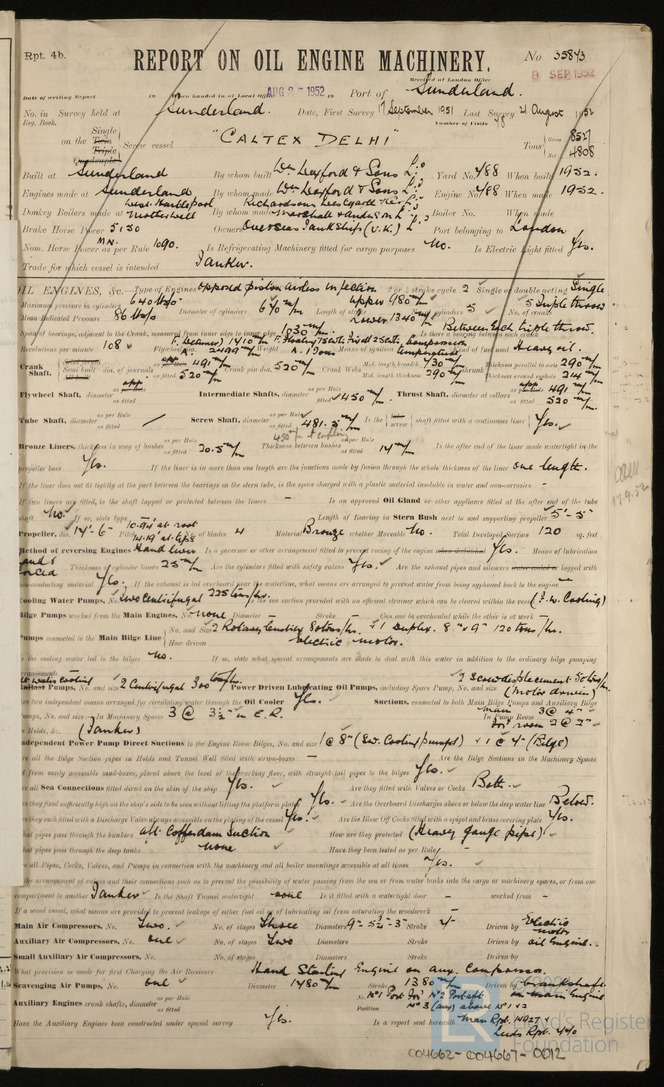 Rpt. 4b.
REPORT ON OIL ENGINE MACHINERY.
No 35843
Received at London Office
8 SEP 1952
Date of writing Report 19 When handed in at Local Office AUG 27 1952 19 Port of Sunderland.
No. in Survey held at Sunderland. Date, First Survey 17 September 1951 Last Survey 21 August 1952
Reg. Book. Number of Visits 48
Single
on the Twin Screw vessel "CALTEX DELHI" Tons Gross 8521
Triple
Quadruple Net 4808
Built at Sunderland By whom built Wm Doxford & Sons Ltd Yard No. 488 When built 1952.
Engines made at Sunderland By whom made Wm Doxford & Sons Ltd Engine No. 488 When made 1952.
West Hartlepool Richardsons Westgarth
Donkey Boilers made at Motherwell By whom made Marshall & Anderson Ltd Boiler No. When made
Brake Horse Power 5150 Owners Overseas Tankships (U.K.) Ltd Port belonging to London
Nom. Horse Power as per Rule MN. 1090. Is Refrigerating Machinery fitted for cargo purposes No. Is Electric Light fitted Yes.
Trade for which vessel is intended Tanker.
OIL ENGINES, &c. Type of Engines Opposed piston airless injection 2 or 4 stroke cycle 2 Single or double acting Single
Maximum pressure in cylinders 640 lb/□" Diameter of cylinders 670 m/m Length of stroke upper 980 m/m No. of cylinders 5 No. of cranks 5 triple throw
Mean Indicated Pressure 86 lb/□" Lower 1340 m/m
Span of bearings, adjacent to the Crank, measured from inner edge to inner edge 1030 m/m Is there a bearing between each crank Between each triple throw.
Revolutions per minute 108 Flywheel dia. 2499 m/m Weight Means of ignition Compression Kind of fuel used Heavy oil.
Crank Shaft, dia. of journals as per Rule app 491 m/m as fitted 520 m/m Crank pin dia. 520 m/m Crank Webs Mid. length breadth 930 m/m Mid. length thickness 290 m/m Thickness parallel to axis 290 m/m Thickness around eyehole 214 m/m
Flywheel Shaft, diameter as per Rule app as fitted Intermediate Shafts, diameter as per Rule as fitted 450 m/m Thrust Shaft, diameter at collars as per Rule app 491 m/m as fitted 520 m/m
Tube Shaft, diameter as per Rule as fitted Screw Shaft, diameter as per Rule as fitted 481.5 m/m Is the screw shaft fitted with a continuous liner Yes.
Bronze Liners, thickness in way of bushes as per Rule as fitted 20.5 m/m Thickness between bushes as per Rule as fitted 14 m/m Is the after end of the liner made watertight in the
propeller boss Yes. If the liner is in more than one length are the junctions made by fusion through the whole thickness of the liner one length.
If the liner does not fit tightly at the part between the bearings in the stern tube, is the space charged with a plastic material insoluble in water and non-corrosive -
If two liners are fitted, is the shaft lapped or protected between the liners - Is an approved Oil Gland or other appliance fitted at the after end of the tube
shaft No. If so, state type Length of Bearing in Stern Bush next to and supporting propeller 5'-5"
Propeller, dia. 14'-6" Pitch 10.94' at root 14.19' at tips No. of blades 4 Material Bronze whether Moveable No. Total Developed Surface 120 sq. feet
Method of reversing Engines Hand lever Is a governor or other arrangement fitted to prevent racing of the engine when declutched Yes. Means of lubrication
and forced Thickness of cylinder liners 25 m/m Are the cylinders fitted with safety valves Yes. Are the exhaust pipes and silencers water cooled or lagged with
non-conducting material Yes. If the exhaust is led overboard near the waterline, what means are arranged to prevent water from being syphoned back to the engine -
Cooling Water Pumps, No. Two centrifugal 225 tons/hr. Is the sea suction provided with an efficient strainer which can be cleared within the vessel (F.W. Cooling)
Bilge Pumps worked from the Main Engines, No. none Diameter - Stroke - Can one be overhauled while the other is at work -
Pumps connected to the Main Bilge Line No. and Size 2 Rotary 80 tons/hr. & 1 Duplex. 8" x 9" 120 tons/hr.
How driven Electric motor.
Is the cooling water led to the bilges No. If so, state what special arrangements are made to deal with this water in addition to the ordinary bilge pumping
Ballast Pumps, No. and size 2 Centrifugal 300 tons/hr. Power Driven Lubricating Oil Pumps, including Spare Pump, No. and size 2 Screw displacement (motor driven)
Are two independent means arranged for circulating water through the Oil Cooler Yes. Suctions, connected to both Main Bilge Pumps and Auxiliary Bilge
Pumps, No. and size:- In Machinery Spaces 3 @ 3½" in E.R. In Pump Room main 3 @ 4"
In Holds, &c. (Tanker) room 2 @ 2"
Independent Power Pump Direct Suctions to the Engine Room Bilges, No. and size 1 @ 8" (S.W. Cooling pumps) & 1 @ 4" (Bilge)
Are all the Bilge Suction pipes in Holds and Tunnel Well fitted with strum-boxes - Are the Bilge Suctions in the Machinery Spaces
led from easily accessible mud-boxes, placed above the level of the working floor, with straight tail pipes to the bilges Yes.
Are all Sea Connections fitted direct on the skin of the ship Yes. Are they fitted with Valves or Cocks Both.
Are they fixed sufficiently high on the ship's side to be seen without lifting the platform plates Yes. Are the Overboard Discharges above or below the deep water line Below.
Are they each fitted with a Discharge Valve always accessible on the plating of the vessel Yes. Are the Blow Off Cocks fitted with a spigot and brass covering plate Yes.
What pipes pass through the bunkers aft. Cofferdam Suction How are they protected (Heavy gauge pipe)
What pipes pass through the deep tanks none Have they been tested as per Rule
Are all Pipes, Cocks, Valves, and Pumps in connection with the machinery and all boiler mountings accessible at all times Yes.
Is the arrangement of valves and their connections such as to prevent the possibility of water passing from the sea or from water tanks into the cargo or machinery spaces, or from one
compartment to another Tanker Is the Shaft Tunnel watertight none Is it fitted with a watertight door - worked from -
If a wood vessel, what means are provided to prevent leakage of either fuel oil or of lubricating oil from saturating the woodwork -
Main Air Compressors, No. Two. No. of stages Three Diameters 9"-5¾"-3" Stroke 4" Driven by Electric motor
Auxiliary Air Compressors, No. one No. of stages Two Diameters Stroke Driven by oil Engine.
Small Auxiliary Air Compressors, No. No. of stages Diameters Stroke Driven by
What provision is made for first Charging the Air Receivers Hand Starting Engine on aux. Compressor.
Scavenging Air Pumps, No. one Diameter 1480 m/m Stroke 1380 m/m Driven by Crankshaft on main Engine
Auxiliary Engines crank shafts, diameter as per Rule as fitted No. Position No 1 Port for'd No 2 Port aft No 3 (Aux) above No 1 & 2
Have the Auxiliary Engines been constructed under special survey Yes. Is a report sent herewith Man Rpt. 14927 Leeds Rpt.
17.9.52
Lloyd's Register
Foundation
004662-004667-0012